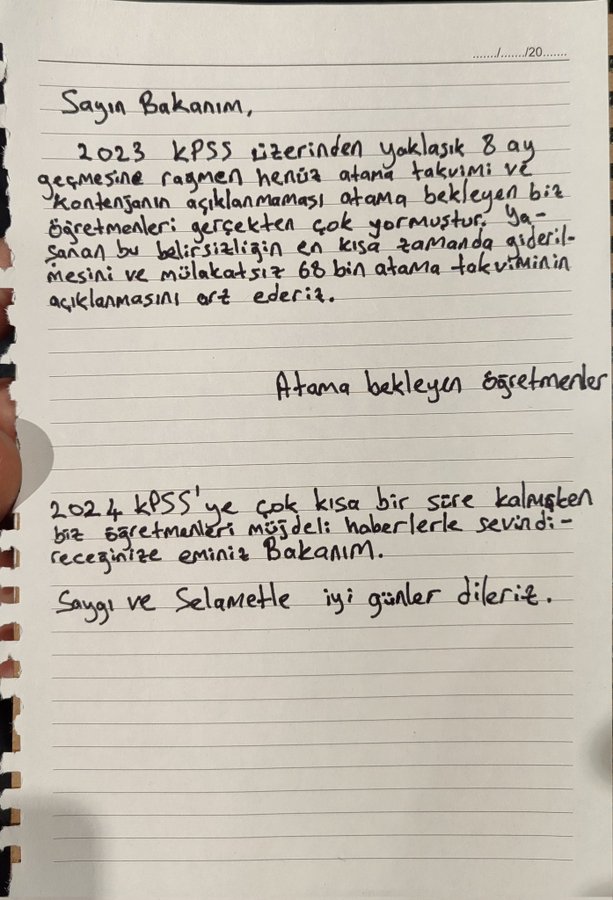 ......./......./20.......
Sayın Bakanım,
2023 KPSS üzerinden yaklaşık 8 ay
geçmesine rağmen henüz atama takvimi ve
kontenjanın açıklanmaması atama bekleyen biz
öğretmenleri gerçekten çok yormuştur. Ya-
şanan bu belirsizliğin en kısa zamanda gideril-
mesini ve mülakatsız 68 bin atama takviminin
açıklanmasını arz ederiz.
Atama bekleyen öğretmenler
2024 KPSS'ye çok kısa bir süre kalmışken
biz öğretmenleri müjdeli haberlerle sevindi-
receğinize eminiz Bakanım.
Saygı ve Selametle iyi günler dileriz.